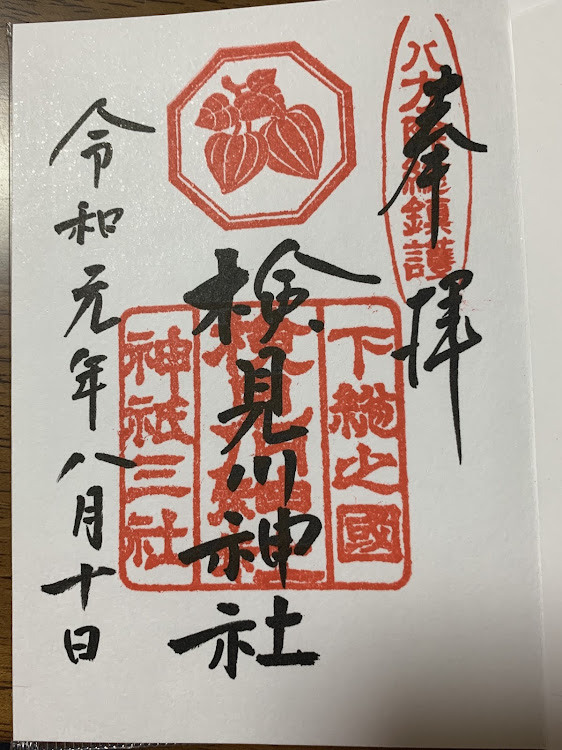 八方除総鎮護
奉拝
下総之國
検見川神社
神祇三社
令和元年八月十日